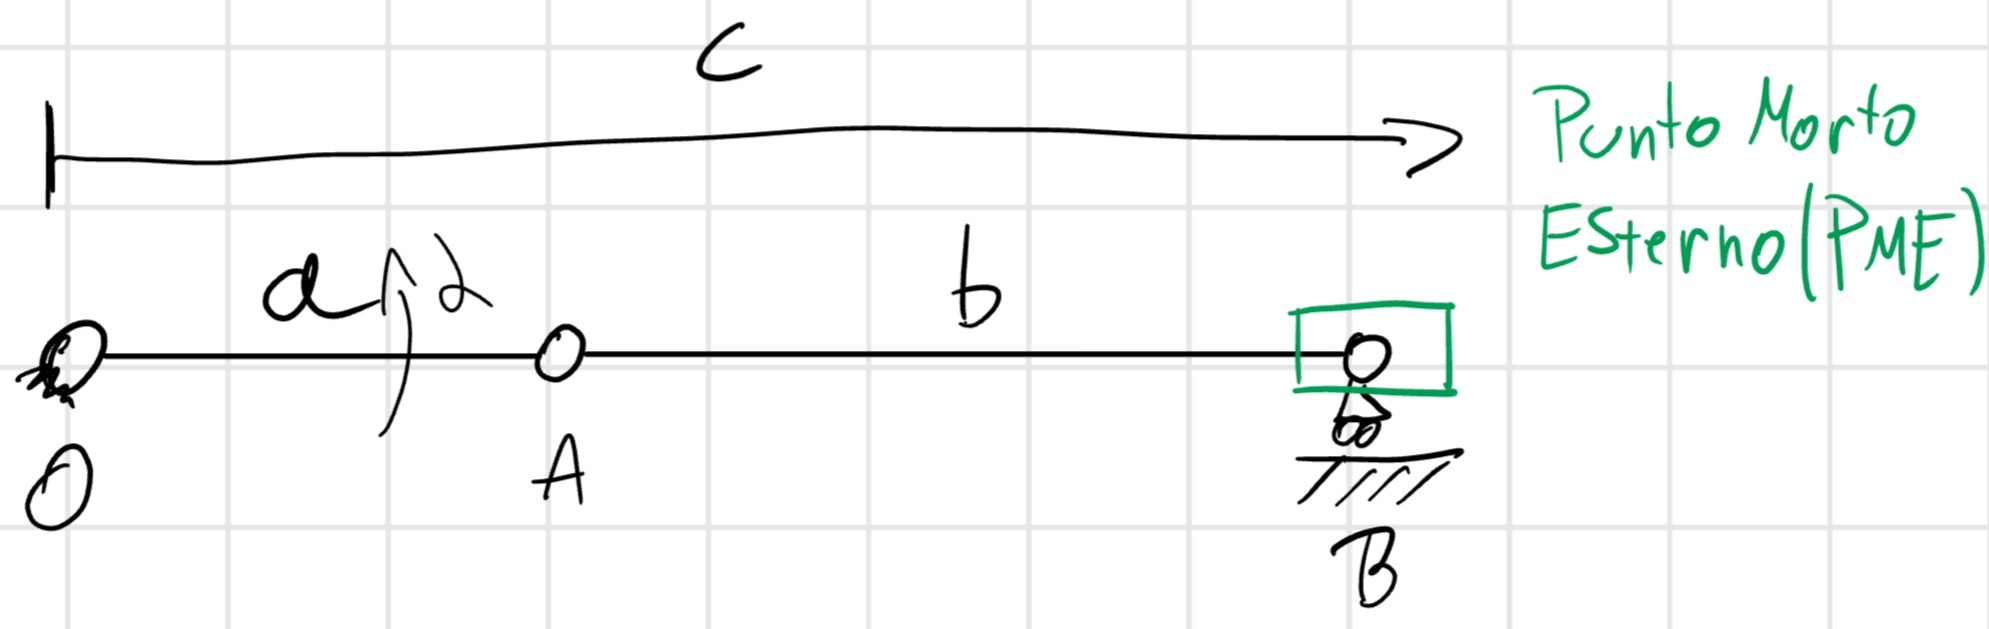 C
Punto Morto
Esterno (PME)
a α b
O A B